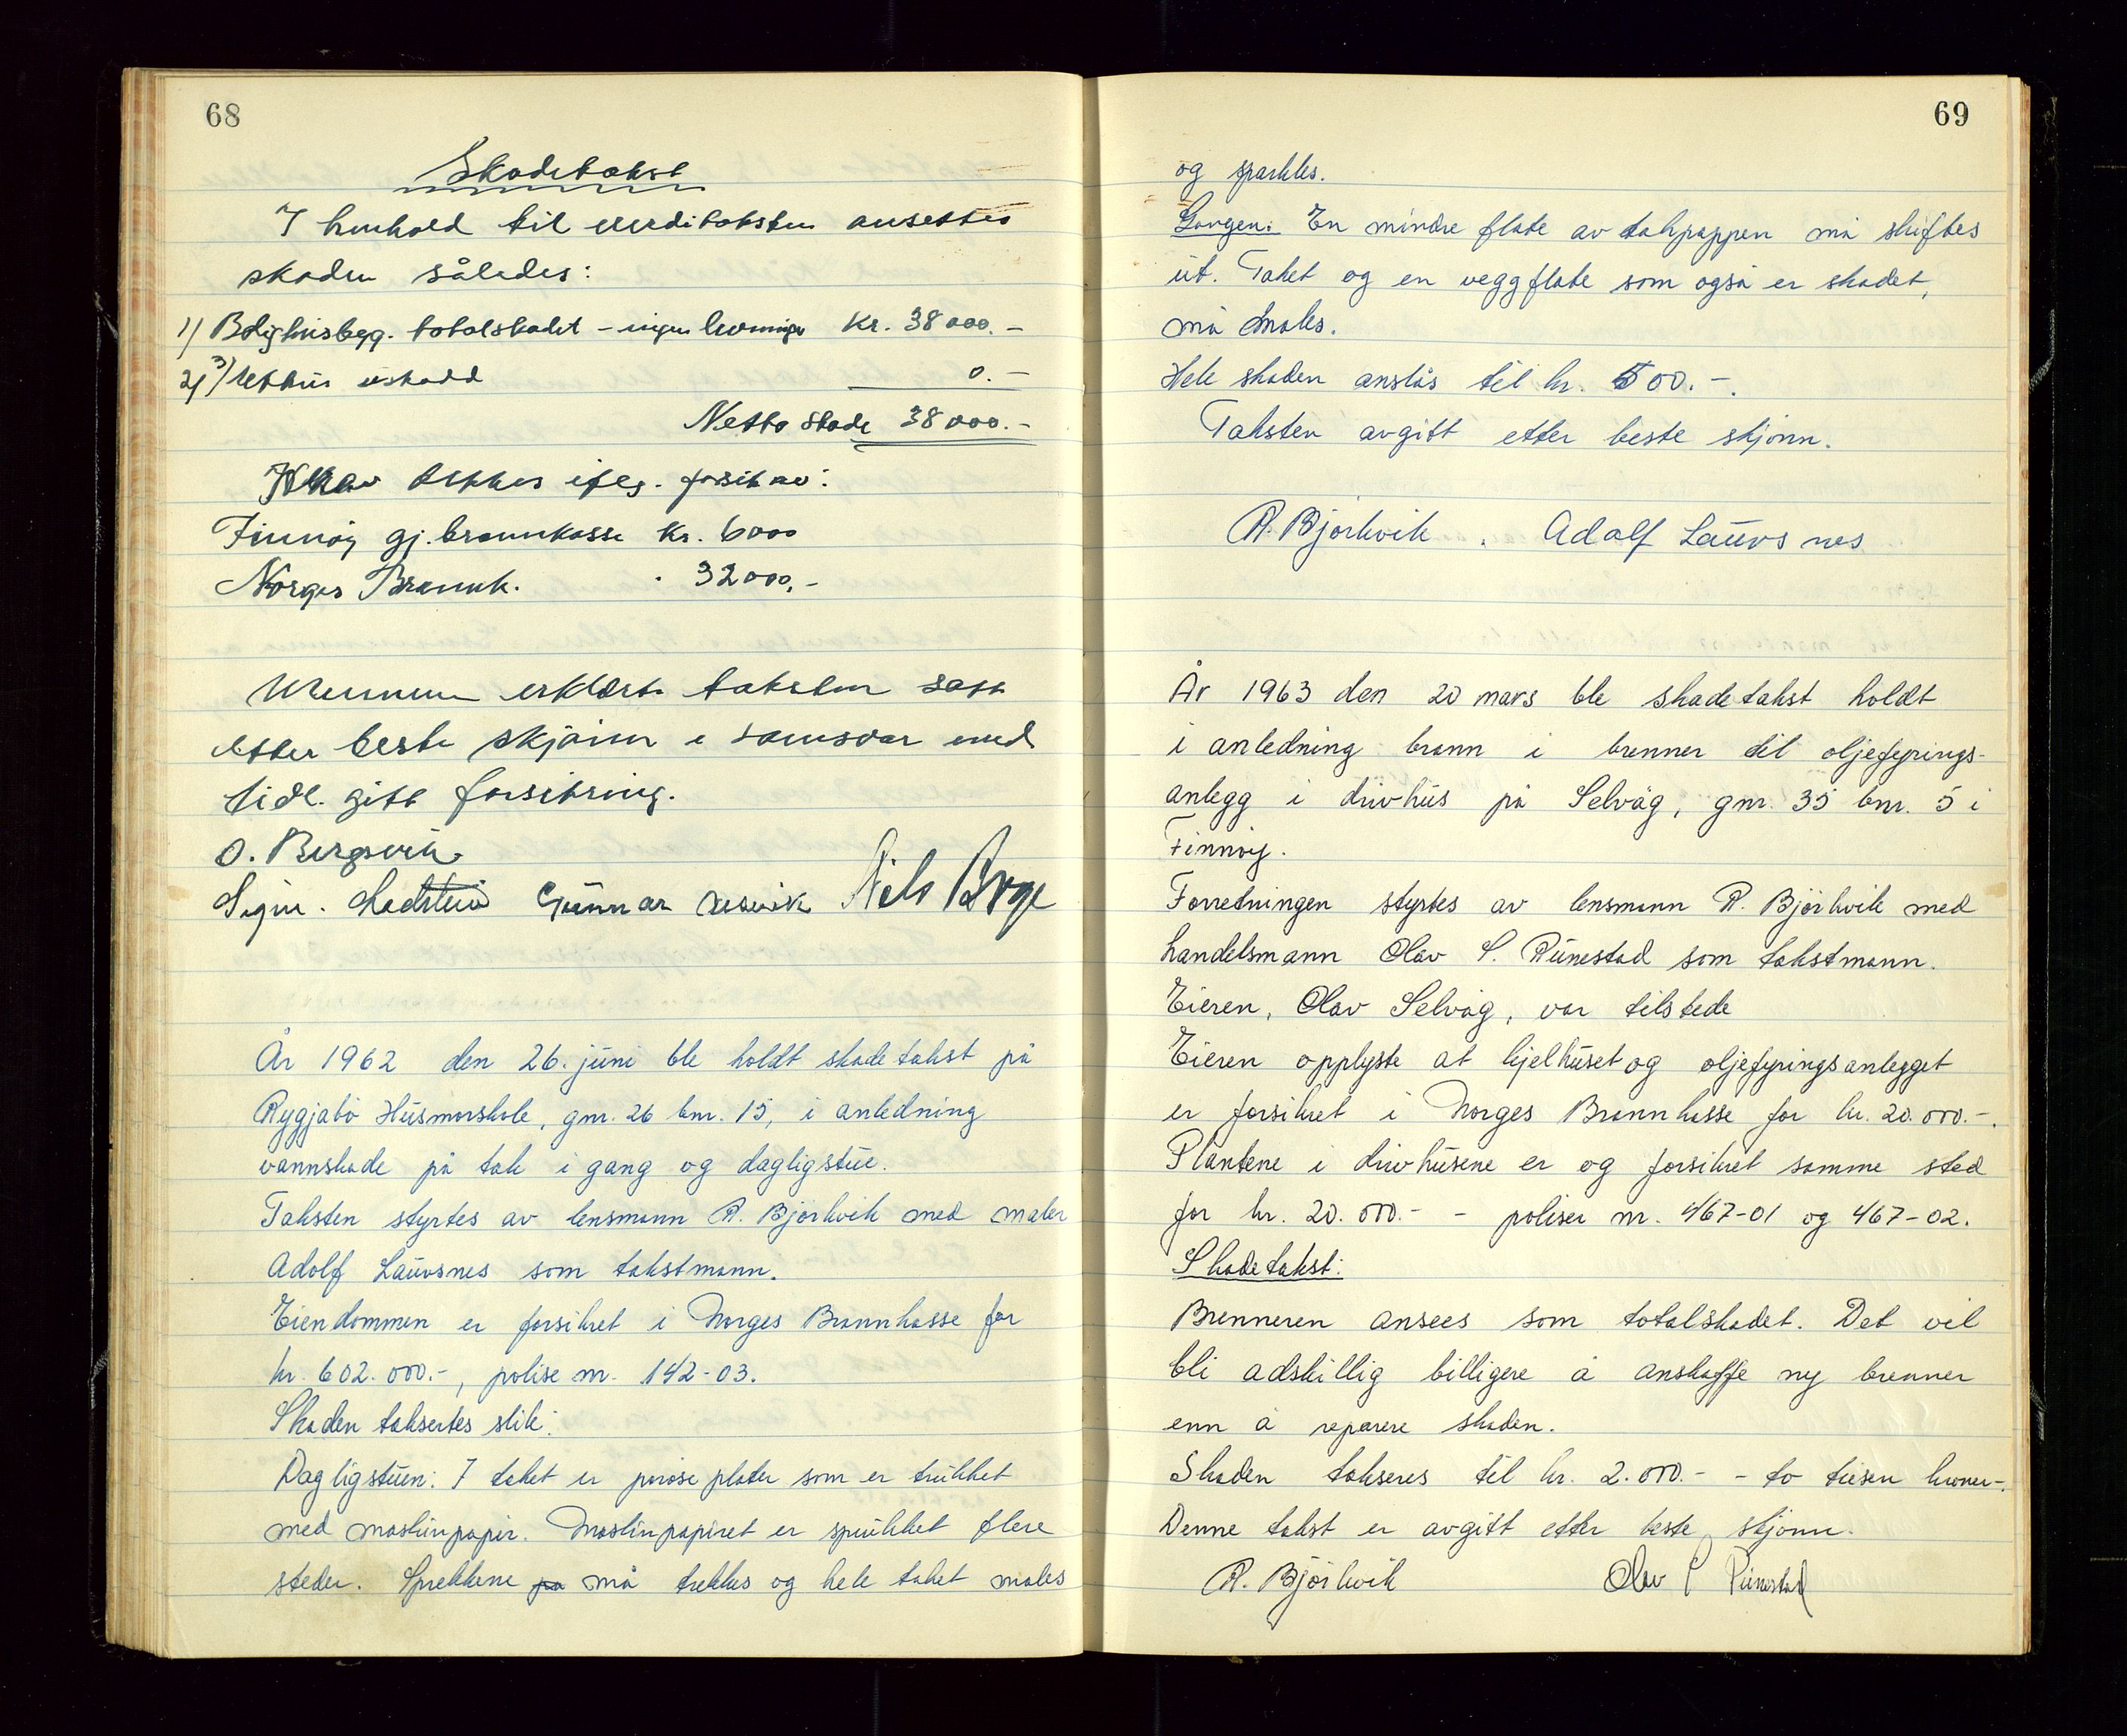 68
Skadetakst
I henhold til verditaksten ansettes
skaden således:
1) Bolighusbygg. totalskadet - ingen levninger Kr. 38 000.-
2) 3) Uthus uskadd 0.-
Netto skade 38 000.-
dekkes ifлg. forsikr:
Finnøy gj. brannkasse Kr. 6000
Norges Brannk. " 32 000,-
Mennene erklærte taksten satt
etter beste skjønn i samsvar med
tidl. gitt forsikring.
O. Bergsvik
Sigm. Ladstein Gunnar Nils Berge
År 1962 den 26. juni ble holdt skadetakst på
Rygjabø Husmorskole, gnr. 26 bnr. 15, i anledning
vannskade på tak i gang og dagligstue.
Taksten styrtes av lensmann R. Bjørkvik med maler
Adolf Lauvsnes som takstmann.
Eiendommen er forsikret i Norges Brannkasse for
kr. 602.000.-, polise nr. 142-03.
Skaden taksertes slik:
Dagligstuen: I taket er porøse plater som er trukket
med maskinpapir. Maskinpapiret er sprukket flere
steder. Sprekkene på må trekkes og hele taket males
69
og sparkles.
Gangen: En mindre flate av takpappen må skiftes
ut. Taket og en veggflate som også er skadet,
må males.
Hele skaden anslås til kr. 500.-.
Taksten avgitt etter beste skjønn.
R. Bjørkvik . Adolf Lauvsnes
År 1963 den 20 mars ble skadetakst holdt
i anledning brann i brenner til oljefyrings-
anlegg i drivhus på Selvåg, gnr. 35 bnr. 5 i
Finnøy.
Forretningen styrtes av lensmann R. Bjørkvik med
handelsmann Olav S. Runestad som takstmann.
Eieren, Olav Selvåg, var tilstede
Eieren opplyste at kjelhuset og oljefyringsanlegget
er forsikret i Norges Brannkasse for kr. 20.000.-.
Plantene i drivhusene er og forsikret samme sted
for kr. 20.000.- - poliser nr. 467-01 og 467-02.
Skadetakst:
Brenneren ansees som totalskadet. Det vil
bli adskillig billigere å anskaffe ny brenner
enn å reparere skaden.
Skaden takseres til kr. 2.000.- - to tusen kroner-.
Denne takst er avgitt etter beste skjønn.
R. Bjørkvik Olav S Runestad